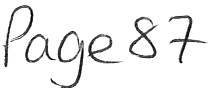 Page 87